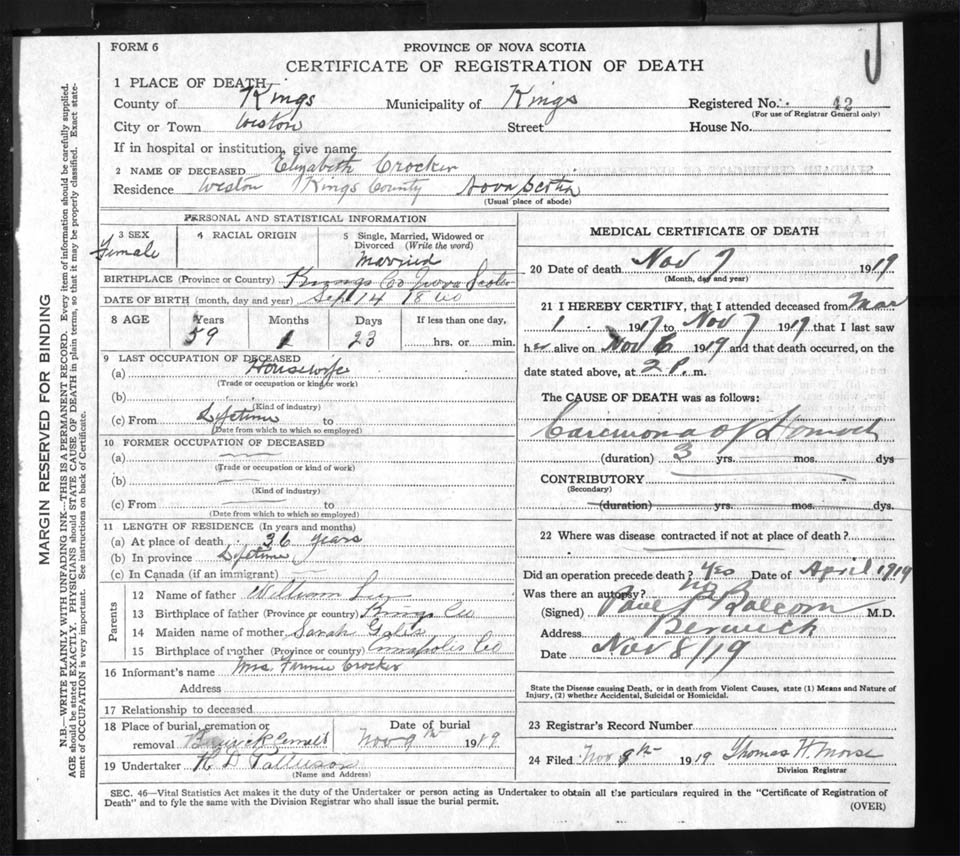 FORM 6
PROVINCE OF NOVA SCOTIA
CERTIFICATE OF REGISTRATION OF DEATH
1 PLACE OF DEATH—
County of Kings Municipality of Kings Registered No. 42
(For use of Registrar General only)
City or Town Weston Street House No.
If in hospital or institution, give name
2 NAME OF DECEASED Elizabeth Crocker
Residence Weston Kings County Nova Scotia
(Usual place of abode)
PERSONAL AND STATISTICAL INFORMATION
3 SEX Female
4 RACIAL ORIGIN
5 Single, Married, Widowed or Divorced (Write the word)
Married
BIRTHPLACE (Province or Country) Kings Co Nova Scotia
DATE OF BIRTH (month, day and year) Sep 14 1860
8 AGE Years Months Days If less than one day,
59 1 23 hrs. or min.
9 LAST OCCUPATION OF DECEASED
(a) Housewife
(Trade or occupation or kind or work)
(b)
(Kind of industry)
(c) From Lifetime to
(Date from which to which so employed)
10 FORMER OCCUPATION OF DECEASED
(a) —
(Trade or occupation or kind of work)
(b) —
(Kind of industry)
(c) From — to
(Date from which to which so employed)
11 LENGTH OF RESIDENCE (In years and months)
(a) At place of death 36 years
(b) In province Lifetime
(c) In Canada (if an immigrant) —
Parents
12 Name of father William
13 Birthplace of father (Province or country) Kings Co
14 Maiden name of mother Sarah
15 Birthplace of mother (Province or country) Annapolis Co
16 Informant's name Mrs Crocker
Address
17 Relationship to deceased
18 Place of burial, cremation or removal Berwick
Date of burial Nov 9th 1919
19 Undertaker
(Name and Address)
MEDICAL CERTIFICATE OF DEATH
20 Date of death Nov 7 1919
(Month, day and year)
21 I HEREBY CERTIFY, that I attended deceased from Mar
1 1917 to Nov 7 1919 that I last saw
her alive on Nov 6 1919 and that death occurred, on the
date stated above, at 2 P. m.
The CAUSE OF DEATH was as follows:
Carcinoma of Stomach
(duration) 3 yrs. mos. dys
CONTRIBUTORY
(Secondary)
(duration) yrs. mos. dys.
22 Where was disease contracted if not at place of death?
Did an operation precede death? Yes Date of April 1919
Was there an autopsy? no
(Signed) Balcom M.D.
Address Berwick
Date Nov 8/19
State the Disease causing Death, or in death from Violent Causes, state (1) Means and Nature of
Injury, (2) whether Accidental, Suicidal or Homicidal.
23 Registrar's Record Number
24 Filed Nov 9th 1919 Thomas H. Morse
Division Registrar
SEC. 46—Vital Statistics Act makes it the duty of the Undertaker or person acting as Undertaker to obtain all the particulars required in the "Certificate of Registration of
Death" and to fyle the same with the Division Registrar who shall issue the burial permit.
(OVER)
MARGIN RESERVED FOR BINDING
N.B.—WRITE PLAINLY WITH UNFADING INK—THIS IS A PERMANENT RECORD. Every item of information should be carefully supplied.
AGE should be stated EXACTLY. PHYSICIANS should STATE CAUSE OF DEATH in plain terms, so that it may be properly classified. Exact state-
ment of OCCUPATION is very important. See instructions on back of Certificate.